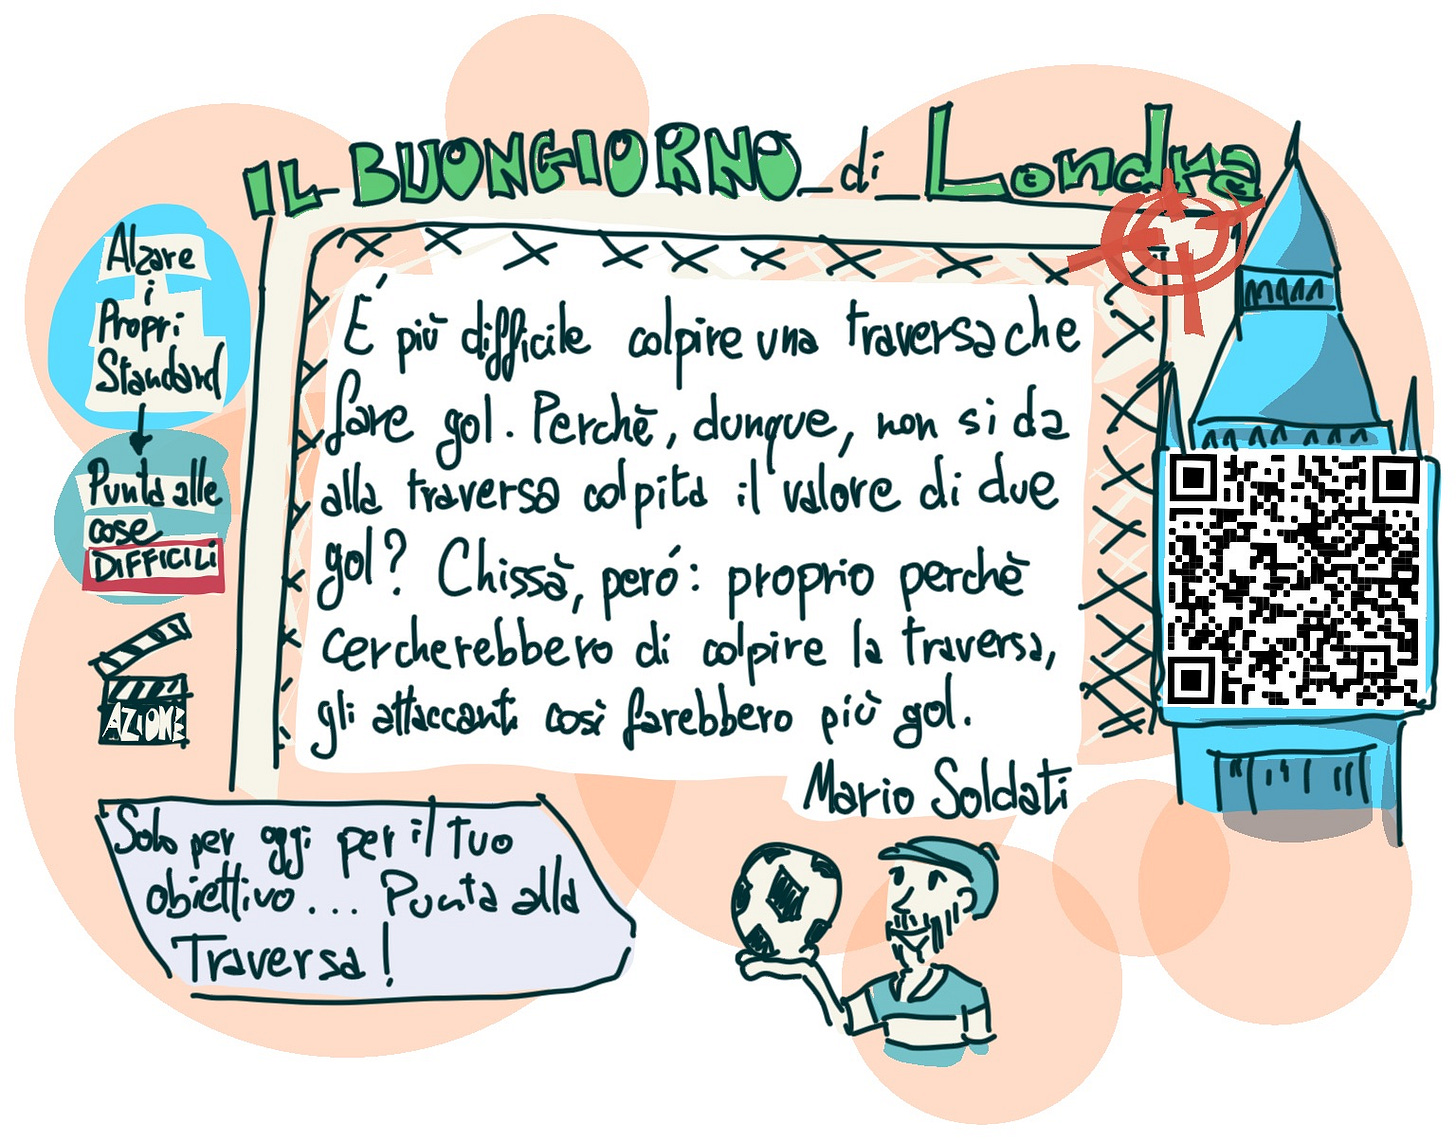 IL BUONGIORNO_di_Londra
Alzare
i
Propri
Standard
Punta alle
cose
DIFFICILI
AZIONE
É più difficile colpire una traversa che
fare gol. Perchè, dunque, non si da
alla traversa colpita il valore di due
gol? Chissà, peró: proprio perchè
cercherebbero di colpire la traversa,
gli attaccanti così farebbero più gol.
Mario Soldati
Solo per oggi per il tuo
obiettivo... Punta alla
Traversa!